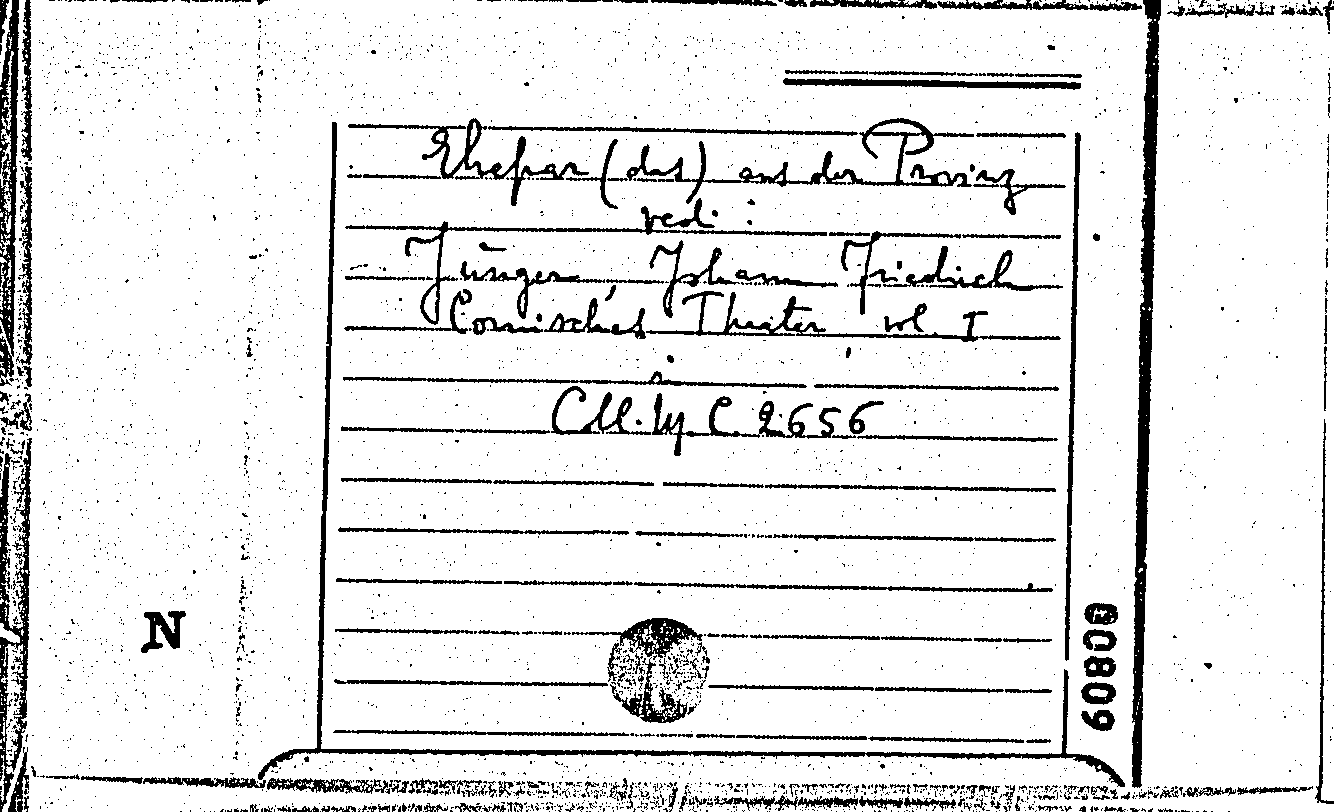 Ehepar (das) aus der Provinz
vedi:
Jünger, Johann Friedrich
Comisches Theater, vol. I
C 2656
N
60800